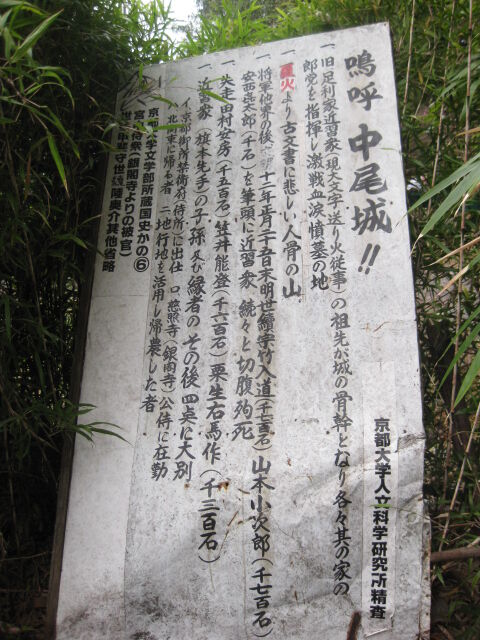 嗚呼 中尾城!!
京都大学人文科学研究所精査
一 旧足利家近習家(現大文字送り火従事)の祖先が城の骨幹となり各々其の家の
郎党を指揮し激戦血涙憤墓の地
一 より古文書に悲しい人骨の山
一 将軍他界の後 十二年正月二十 日末明世續宗竹入道(千二百石)山本小次郎(千七百石)
安西 次郎(千石)を筆頭に近習衆 続々と切腹殉死
一 矢走田村安房(千五百石)笠井能登(千六百石)粟生右馬作(千三百石)
一 近習家(旗本先手)の子孫及び縁者のその後 四点に大別
イ 京都御所禁衛 侍所に出仕 ロ 慈照寺(銀閣寺)公侍に在勤
北 東に帰る者 ニ 地行地を活用し帰農した者
京都 学文学部所蔵国史かの⑥
宮 侍衆 銀閣寺よりの被官
世 甲斐守世續陸奥介其他省略